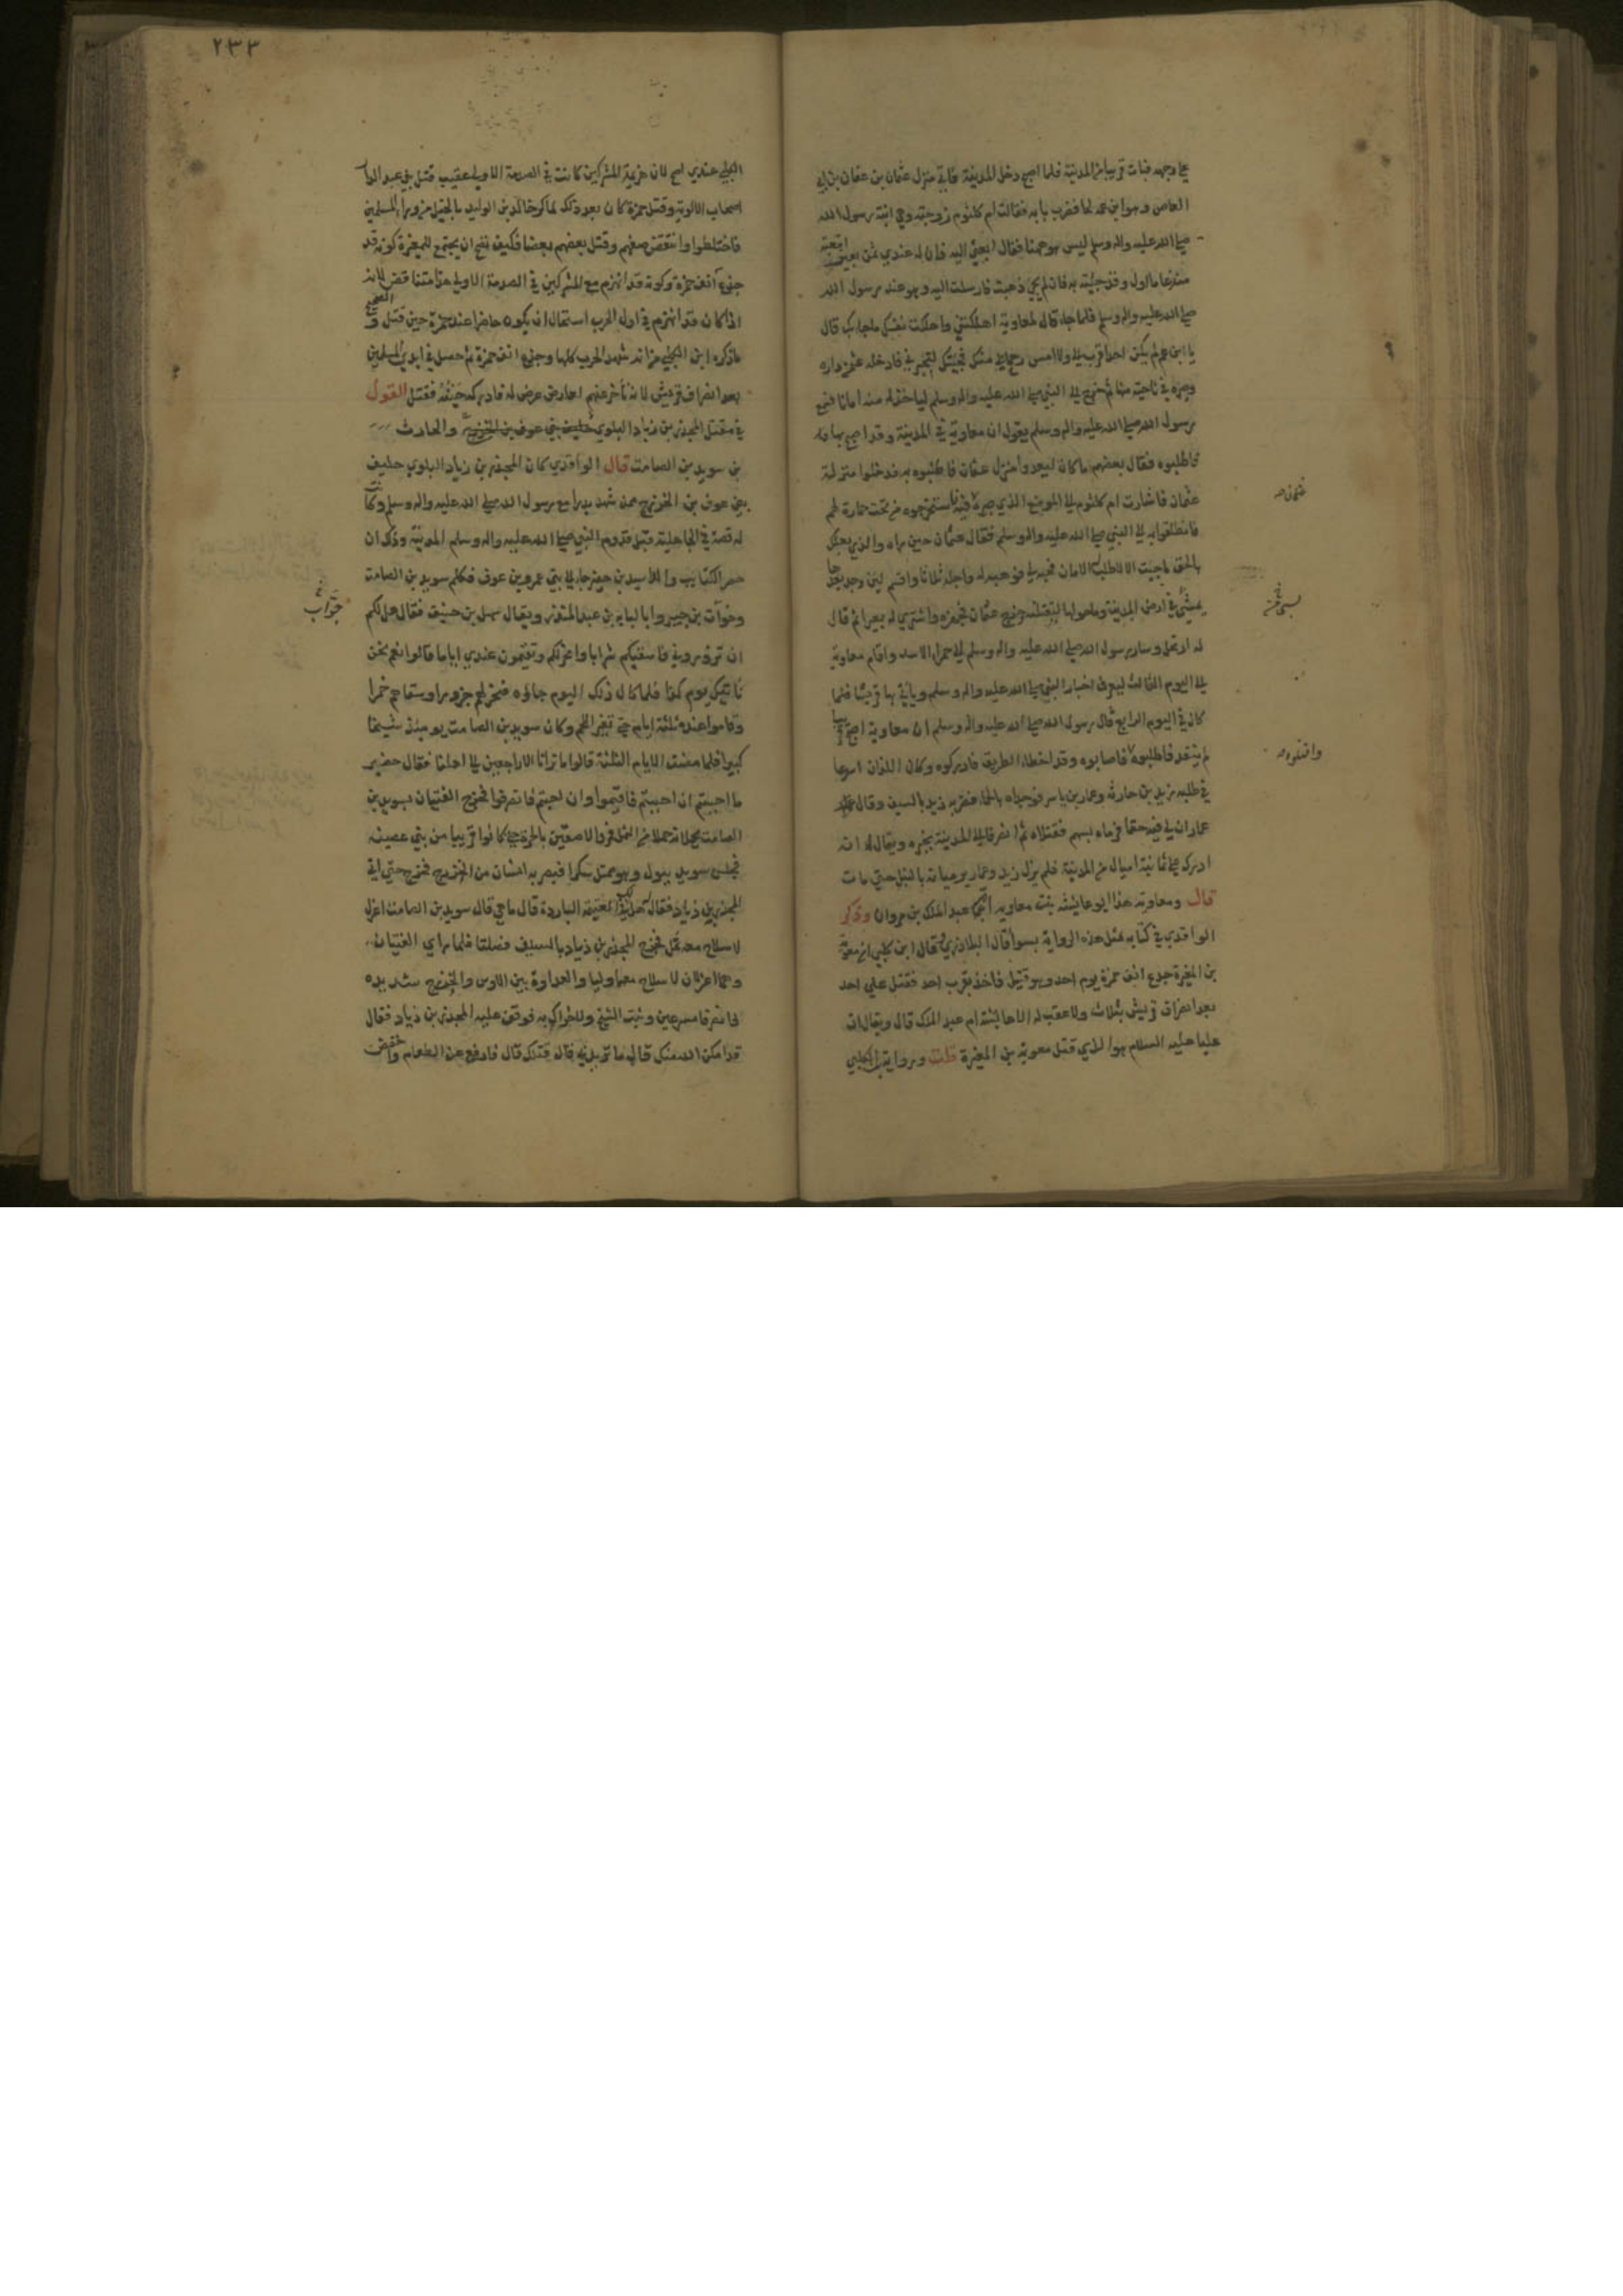 علي وجهه فبات قريبا من المدينة فلما اصبح دخل المدينة فاتي منزل عثمان بن عفان بن ابي
العاص وهو ابن عمه لحا فضرب بابه فقالت ام كلثوم زوجته وهي ابنة رسول الله
صلي الله عليه واله وسلم ليس هو ههنا فقال ابعثي اليه فان له عندي ثمن بعير ابتعته
منذ عام اول وقد جئته به فان لم يجئ ذهبت فارسلت اليه وهو عند رسول الله
صلي الله عليه واله وسلم فلما جاء قال لمعاوية اهلكتني واهلكت نفسك ما جاء بك قال
يا ابن عم لم يكن احد اقرب الي ولا امس رحما بي منك فجئتك لتجيرني فادخله عثمن داره
وصيره في ناحية منها ثم خرج الي النبي صلي الله عليه واله وسلم لياخذ له منه امانا فسمع
رسول الله صلي الله عليه واله وسلم يقول ان معاوية في المدينة وقد اصبح بها
فاطلبوه فقال بعضهم ما كان ليعدوا منزل عثمان فاطلبوه به فدخلوا منزل
عثمان فاشارت ام كلثوم الي الموضع الذي صيره فيه فاستخرجوه من تحت حمارة لهم
فانطلقوا به الي النبي صلي الله عليه واله وسلم فقال عثمان حين راه والذي بعثك
بالحق ما جيت الا لاطلب له الامان فهبه لي فوهبه له واجله ثلاثا واقسم لين وجد بعدها
يمشي في ارض المدينة وما حولها ليقتلنه وخرج عثمان فجهزه واشتري له بعيرا ثم قال
له ارتحل وسار رسول الله صلي الله عليه واله وسلم الي حمراء الاسد واقام معاوية
الي اليوم الثالث ليعرف اخبار النبي صلي الله عليه واله وسلم وياتي بها قريشا فلما
كان في اليوم الرابع قال رسول الله صلي الله عليه واله وسلم ان معاوية اصبح قريبا
لم ينفذ فاطلبوه فاصابوه وقد اخطاء الطريق فادركوه وكان اللذان اسرعا
في طلبه زيد بن حارثه وعمار بن ياسر فوجداه بالحماء فضربه زيد بالسيف وقال
عمار ان لي فيه حقا فرماه بسهم فقتلاه ثم انصرفا الي المدينة بخبره ويقال انه
ادرك علي ثمانية اميال من المدينة فلم يزل زيد وعمار يرميانه بالنبل حتي مات
قال ومعاوية هذا ابو عايشه بنت معاويه ام عبد الملك بن مروان وذكر
الواقدي في كتابه مثل هذه الرواية سوا قال البلاذري وقال ابن كلبي ان معوية
بن المغيرة جدع انف حمزة يوم احد وهو قتيل فاخذ بقرب احد فقتل علي احد
بعد انصراف قريش بثلاث ولا عقب له الا عايشة ام عبد الملك قال ويقال ان
عليا عليه السلام هو الذي قتل معوية بن المغيرة قلت ورواية ابن الكلبي
عثمن صح
وانقلوه صح
٢٣٣
الكلبي عندي اصح لان هزيمة المشركين كانت في الصدمة الاولي عقيب قتل بني عبد الدار
اصحاب الالوية وقتل حمزة كان بعد ذلك لما كر خالد بن الوليد بالخيل من وراء المسلمين
فاختلطوا وانتقض صفهم وقتل بعضهم بعضا فكيف يصح ان يجتمع لمغيرة كونه قد
جدع انف حمزة وكونه قد انهزم مع المشركين في الصدمة الاولي هذا متناقض لانه
اذا كان قد انهزم في اول الحرب استحال ان يكون حاضرا عند حمزة حين قتل والصحيح
ما ذكره ابن الكلبي من انه شهد الحرب كلها وجدع انف حمزة ثم حصل في ايدي المسلمين
بعد انصراف قريش لانه تأخر عنهم لعارض عرض له فادركه حينه فقتل القول
في مقتل المجذر بن زياد البلوي حليف بني عوف بن الخزرج والحارث
بن سويد بن الصامت قال الواقدي كان المجذر بن زياد البلوي حليف
بني عوف بن الخزرج ممن شهد بدرا مع رسول الله صلي الله عليه واله وسلم وكانت
له قصة في الجاهلية قبل قدوم النبي صلي الله عليه واله وسلم المدينة وذلك ان
حضير الكتايب والد اسيد بن حضير جاء الي بني عمرو بن عوف فكلم سويد بن الصامت
وخوات بن جبير وابا لبابه بن عبد المنذر ويقال سهل بن حنيف فقال هل لكم
ان تزوروني فاسقيكم شرابا وانحر لكم وتقيمون عندي اياما قالوا نعم نحن
ناتيك يوم كذا فلما كان ذلك اليوم جاؤه فنحر لهم جزورا وسقاهم خمرا
وقاموا عنده ثلثة ايام حتي تغير اللحم وكان سويد بن الصامت يومئذ شيخا
كبيرا فلما مضت الايام الثلثة قالوا ما ترانا الا راجعين الي اهلنا فقال حضير
ما احببتم ان احببتم فاقيموا وان احببتم فانصرفوا فخرج الفتيان بسويد بن
الصامت يحملانه حملا من الثمل فمروا لاصقين بالحرة حتي كانوا قريبا من بني عصينه
فجلس سويد يبول وهو ممتل سكرا فبصر به انسان من الخزرج فخرج حتي اتي
المجذر بن زياد فقال هل لك في الغنيمة الباردة قال ما هي قال سويد بن الصامت اعزل
لا سلاح معه ثمل فخرج المجذر بن زياد بالسيف صلتا فلما راي الفتيان
وهما اعزلان لا سلاح معهما وليا والعداوة بين الاوس والخزرج شديده
فانصرفا مسرعين وثبت الشيخ ولا حراك به فوقف عليه المجذر بن زياد فقال
قد امكن الله منك قال ما تريد بي قال قتلك قال فارفع عن الطعام واخفض
خوات